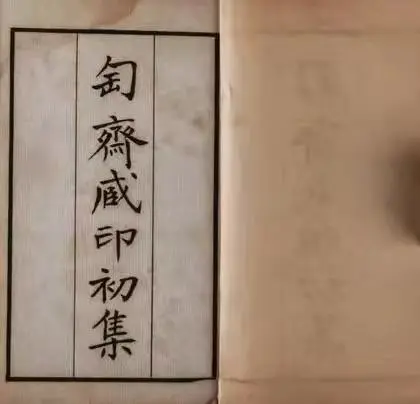 匋齋臧印初集